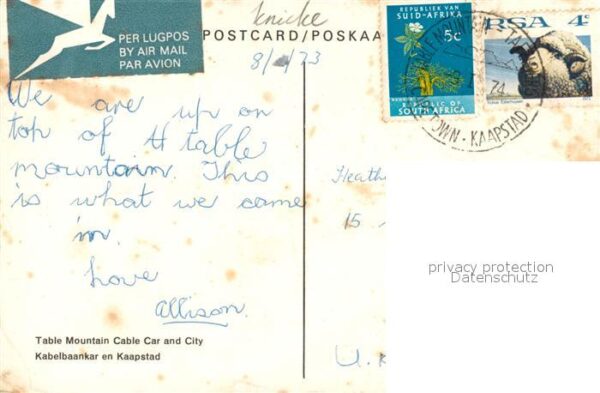 knicke
PER LUGPOS
BY AIR MAIL
PAR AVION
POSTCARD/POSKAA
8/1/73
REPUBLIEK VAN
SUID-AFRIKA
5c
REPUBLIC OF
SOUTH AFRICA
RSA 4c
74
TOWN - KAAPSTAD
We are up on
top of H table
mountain. This
is what we came
in.
Love
Allison.
Heath
15
U.K
privacy protection
Datenschutz
Table Mountain Cable Car and City
Kabelbaankar en Kaapstad